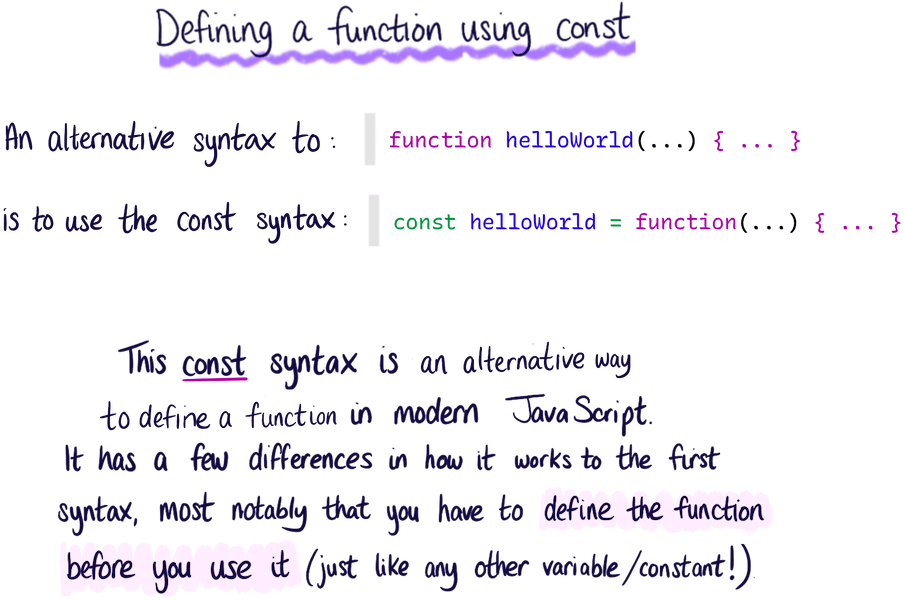 Defining a function using const
An alternative syntax to: function helloWorld(...) { ... }
is to use the const syntax: const helloWorld = function(...) { ... }
This const syntax is an alternative way
to define a function in modern JavaScript.
It has a few differences in how it works to the first
syntax, most notably that you have to define the function
before you use it (just like any other variable/constant!)